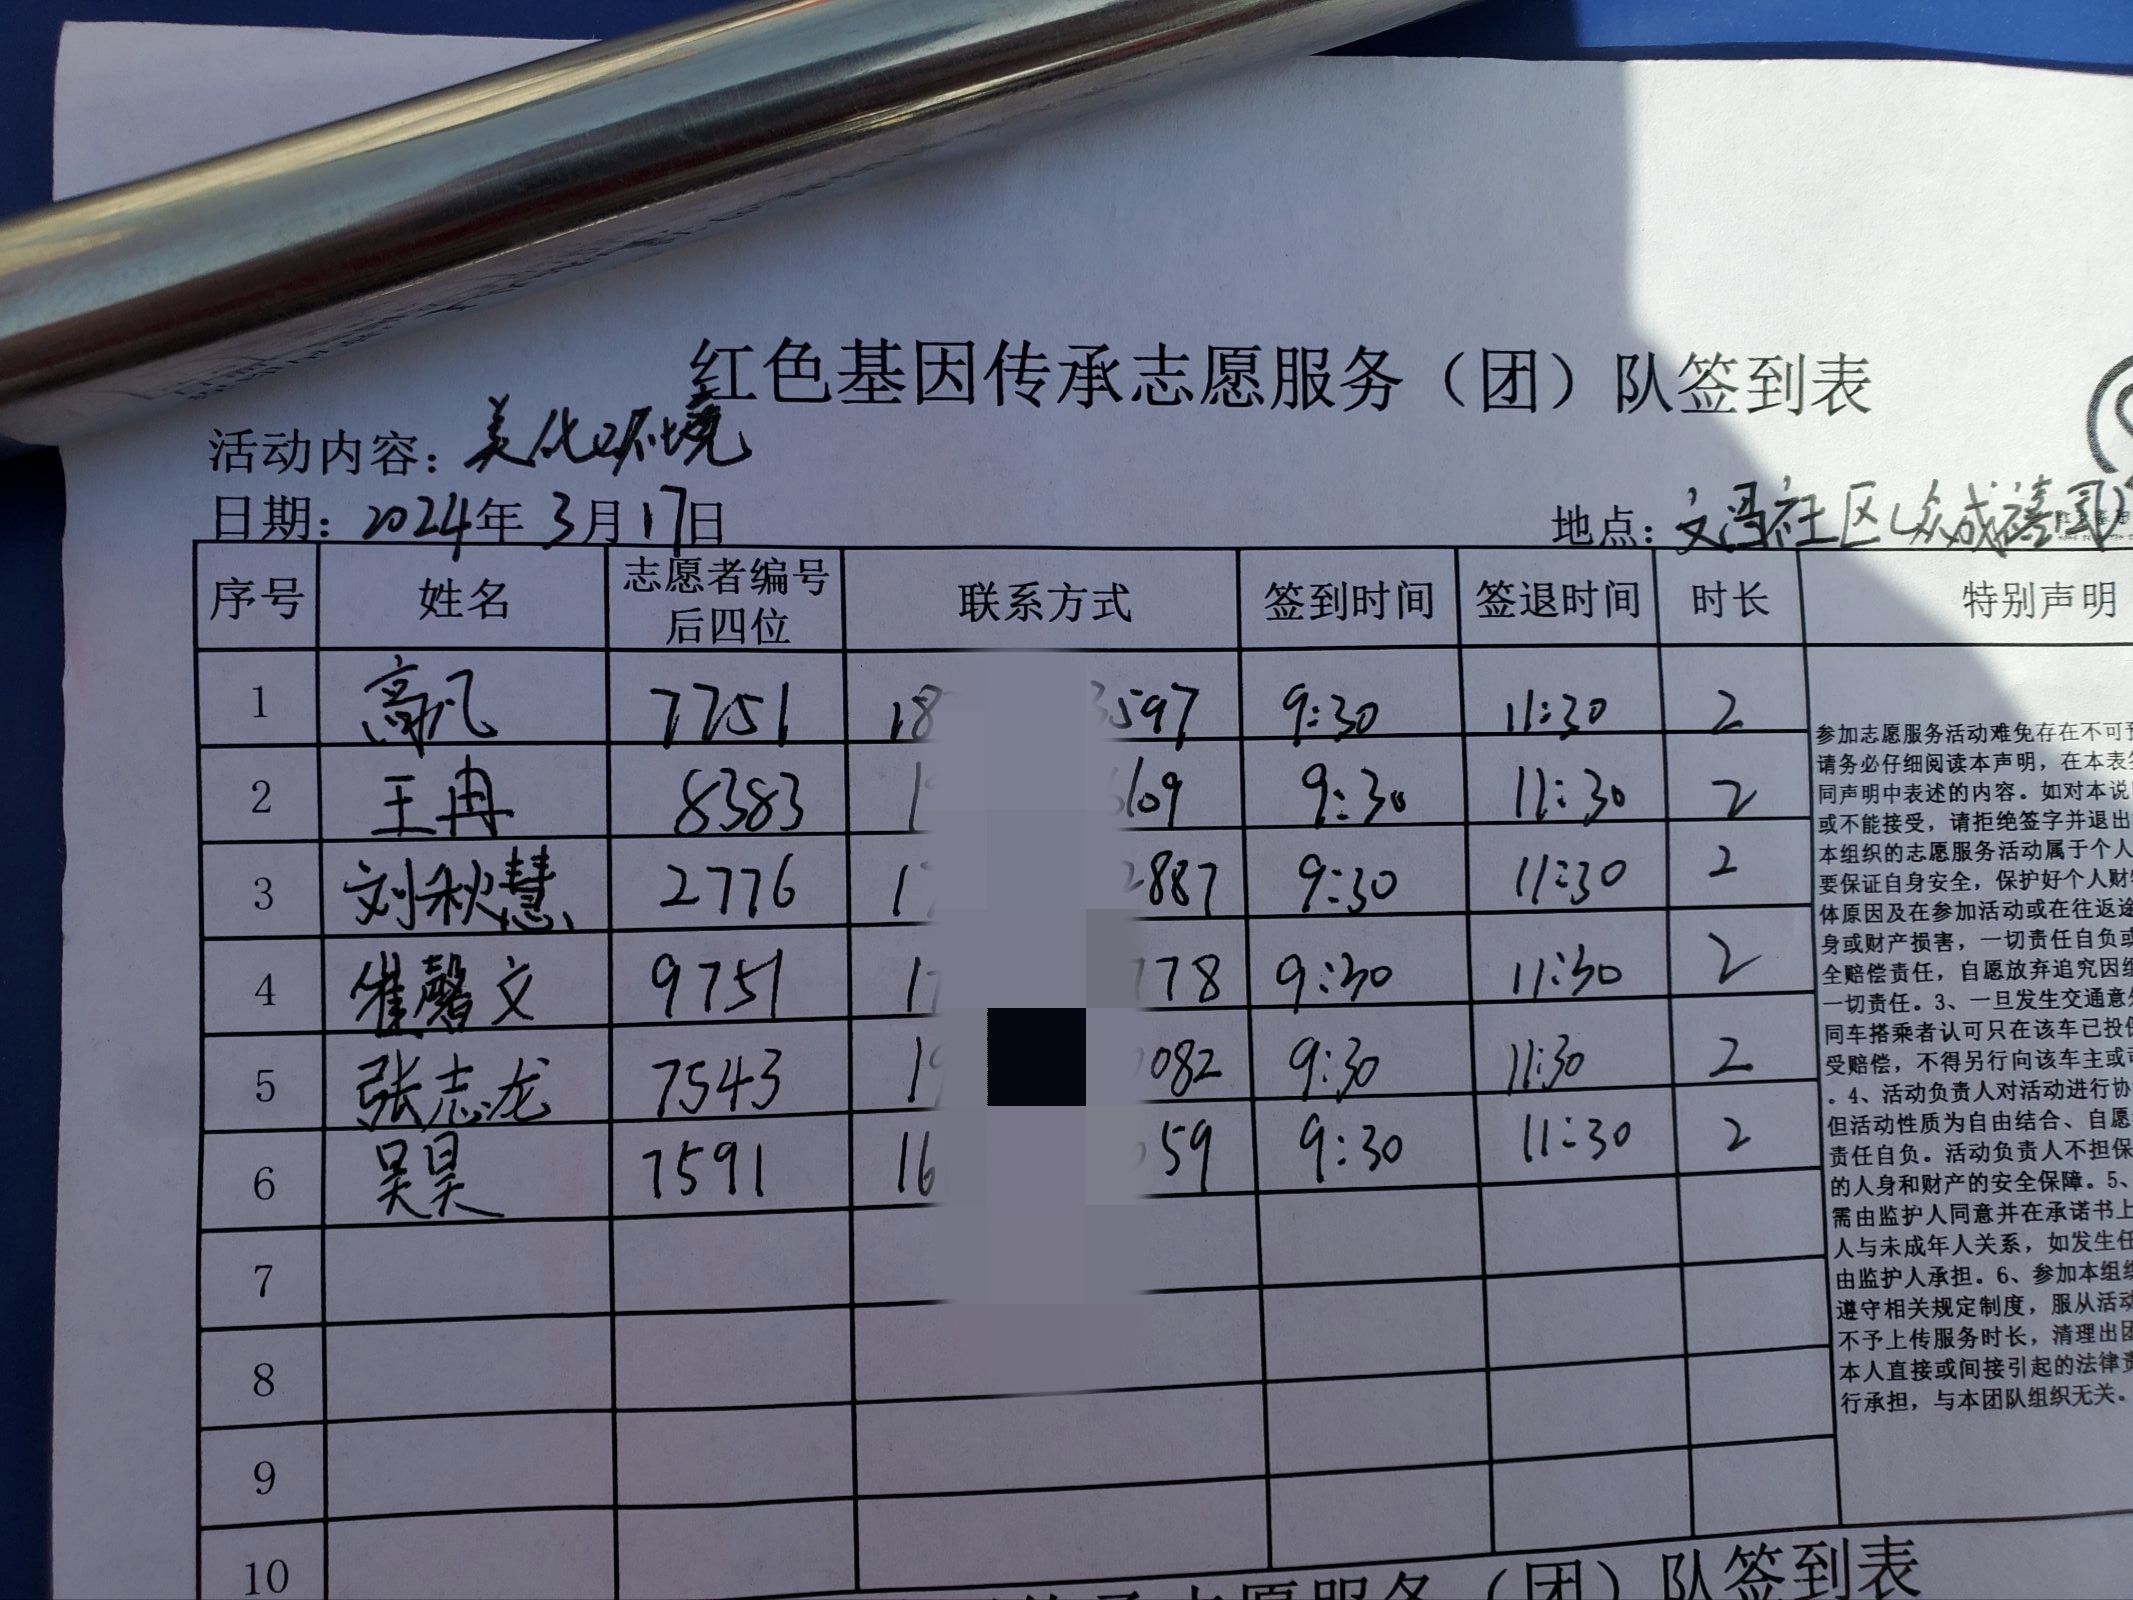 红色基因传承志愿服务（团）队签到表
活动内容：美化环境
日期：2024年 3月17日 地点：文昌社区众成禧园
序号 姓名 志愿者编号后四位 联系方式 签到时间 签退时间 时长 特别声明
1 高凡 7751 18 3597 9:30 11:30 2
2 王冉 8383 1 609 9:30 11:30 2
3 刘秋慧 2776 17 2887 9:30 11:30 2
4 崔馨文 9751 17 178 9:30 11:30 2
5 张志龙 7543 19 082 9:30 11:30 2
6 吴昊 7591 16 59 9:30 11:30 2
7
8
9
10
参加志愿服务活动难免存在不可预
请务必仔细阅读本声明，在本表签
同声明中表述的内容。如对本说
或不能接受，请拒绝签字并退出
本组织的志愿服务活动属于个人
要保证自身安全，保护好个人财物
体原因及在参加活动或在往返途
身或财产损害，一切责任自负或
全赔偿责任，自愿放弃追究因组
一切责任。3、一旦发生交通意外
同车搭乘者认可只在该车已投保
受赔偿，不得另行向该车主或司
。4、活动负责人对活动进行协
但活动性质为自由结合、自愿
责任自负。活动负责人不担保
的人身和财产的安全保障。5、
需由监护人同意并在承诺书上
人与未成年人关系，如发生任
由监护人承担。6、参加本组织
遵守相关规定制度，服从活动
不予上传服务时长，清理出团
本人直接或间接引起的法律责
行承担，与本团队组织无关。
传承志愿服务（团）队签到表